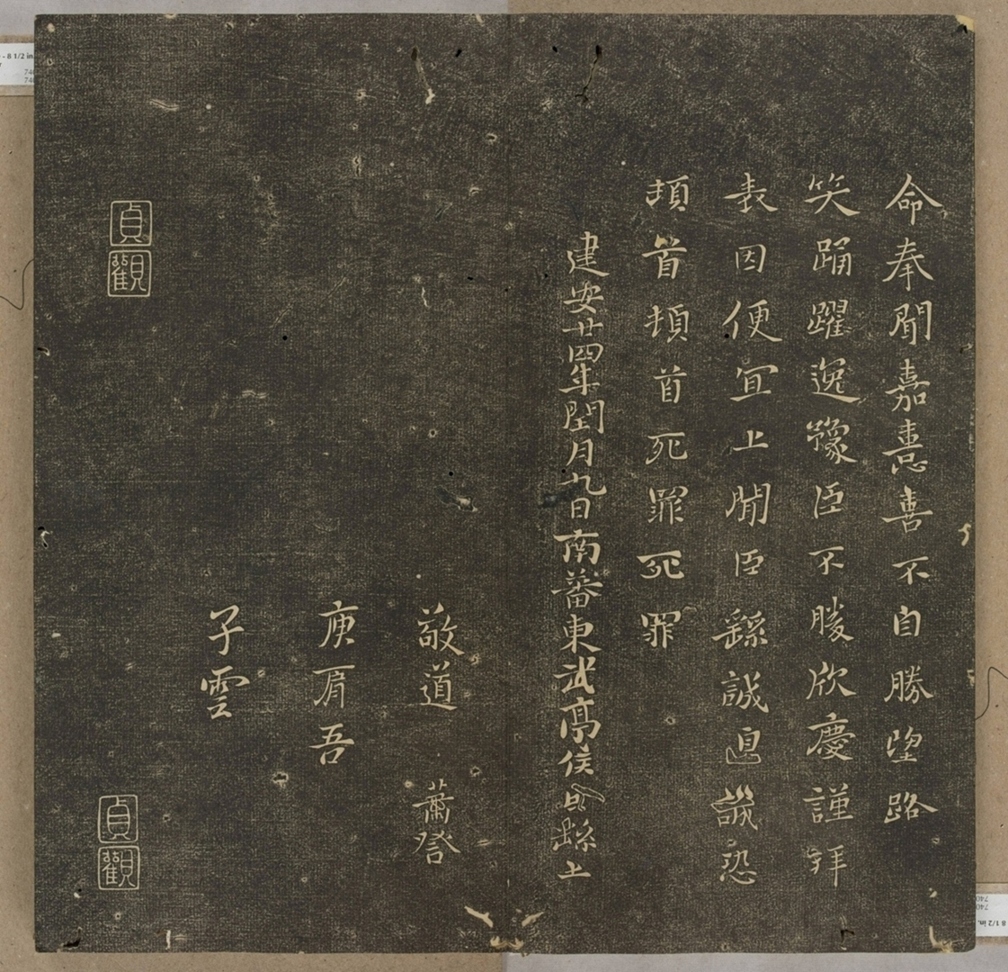 命奉聞嘉憙喜不自勝望路
笑踊躍逸豫臣不勝欣慶謹拜
表因便宜上聞臣繇誠惶誠恐
頓首頓首死罪死罪
建安廿四年閏月九日南蕃東武亭侯臣繇上
敬道
蕭詧
庾肩吾
子雲
貞觀
貞觀